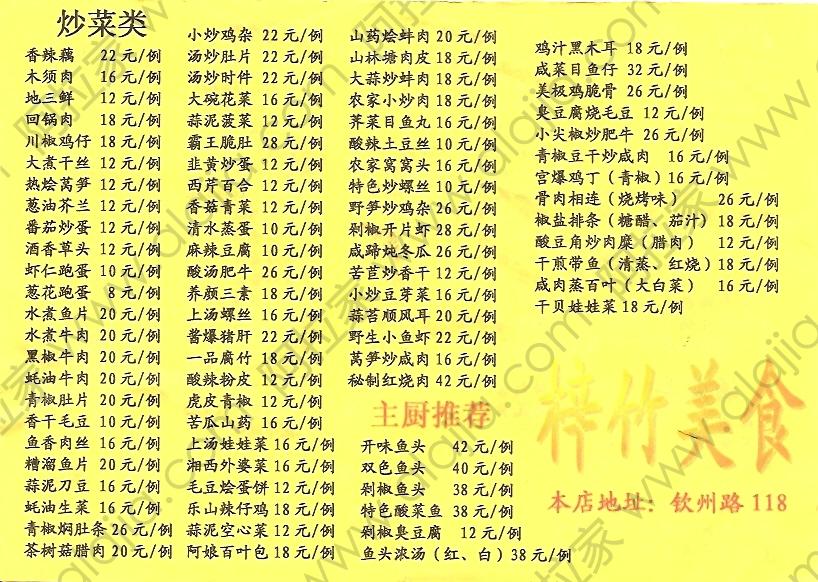 炒菜类
香辣藕 22元/例
木须肉 16元/例
地三鲜 12元/例
回锅肉 18元/例
川椒鸡仔 18元/例
大煮干丝 12元/例
热烩莴笋 12元/例
葱油芥兰 12元/例
番茄炒蛋 12元/例
酒香草头 12元/例
虾仁跑蛋 10元/例
葱花跑蛋 8元/例
水煮鱼片 20元/例
水煮牛肉 20元/例
黑椒牛肉 20元/例
蚝油牛肉 20元/例
青椒肚片 20元/例
香干毛豆 10元/例
鱼香肉丝 16元/例
糟溜鱼片 20元/例
蒜泥刀豆 16元/例
蚝油生菜 16元/例
青椒焖肚条 26元/例
茶树菇腊肉 20元/例
小炒鸡杂 22元/例
汤炒肚片 22元/例
汤炒时件 22元/例
大碗花菜 16元/例
蒜泥菠菜 12元/例
霸王脆肚 28元/例
韭黄炒蛋 12元/例
西芹百合 12元/例
香菇青菜 12元/例
清水蒸蛋 10元/例
麻辣豆腐 10元/例
酸汤肥牛 26元/例
养颜三素 18元/例
上汤螺丝 16元/例
酱爆猪肝 22元/例
一品腐竹 18元/例
酸辣粉皮 12元/例
虎皮青椒 12元/例
苦瓜山药 16元/例
上汤娃娃菜 16元/例
湘西外婆菜 16元/例
毛豆烩蛋饼 12元/例
乐山辣仔鸡 18元/例
蒜泥空心菜 12元/例
阿娘百叶包 18元/例
山药烩蚌肉 20元/例
山林塘肉皮 18元/例
大蒜炒蚌肉 20元/例
农家小炒肉 18元/例
荠菜目鱼丸 16元/例
酸辣土豆丝 10元/例
农家窝窝头 16元/例
特色炒螺丝 10元/例
野笋炒鸡杂 26元/例
剁椒开片虾 28元/例
咸蹄炖冬瓜 26元/例
苦苣炒香干 12元/例
小炒豆芽菜 16元/例
蒜苔顺风耳 20元/例
野生小鱼虾 22元/例
莴笋炒咸肉 16元/例
秘制红烧肉 42元/例
主厨推荐
开味鱼头 42元/例
双色鱼头 40元/例
剁椒鱼头 38元/例
特色酸菜鱼 38元/例
剁椒臭豆腐 12元/例
鱼头浓汤（红、白）38元/例
鸡汁黑木耳 18元/例
咸菜目鱼仔 32元/例
美极鸡脆骨 26元/例
臭豆腐烧毛豆 12元/例
小尖椒炒肥牛 26元/例
青椒豆干炒咸肉 16元/例
宫爆鸡丁（青椒）16元/例
骨肉相连（烧烤味） 26元/例
椒盐排条（糖醋、茄汁）18元/例
酸豆角炒肉糜（腊肉） 12元/例
干煎带鱼（清蒸、红烧）18元/例
咸肉蒸百叶（大白菜） 16元/例
干贝娃娃菜 18元/例
梓竹美食
本店地址：钦州路118
阿拉家 www.alajia.com